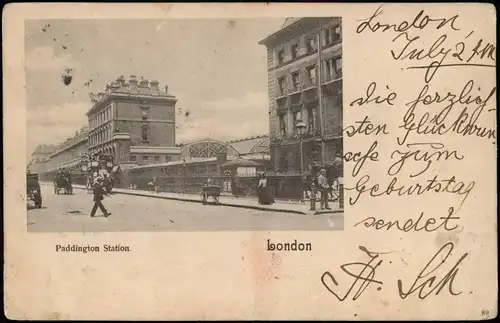 London
July 2
die herzlich
sten Glückwün
sche zum
Geburtstag
sendet
H. Sch.
Paddington Station.
London
89